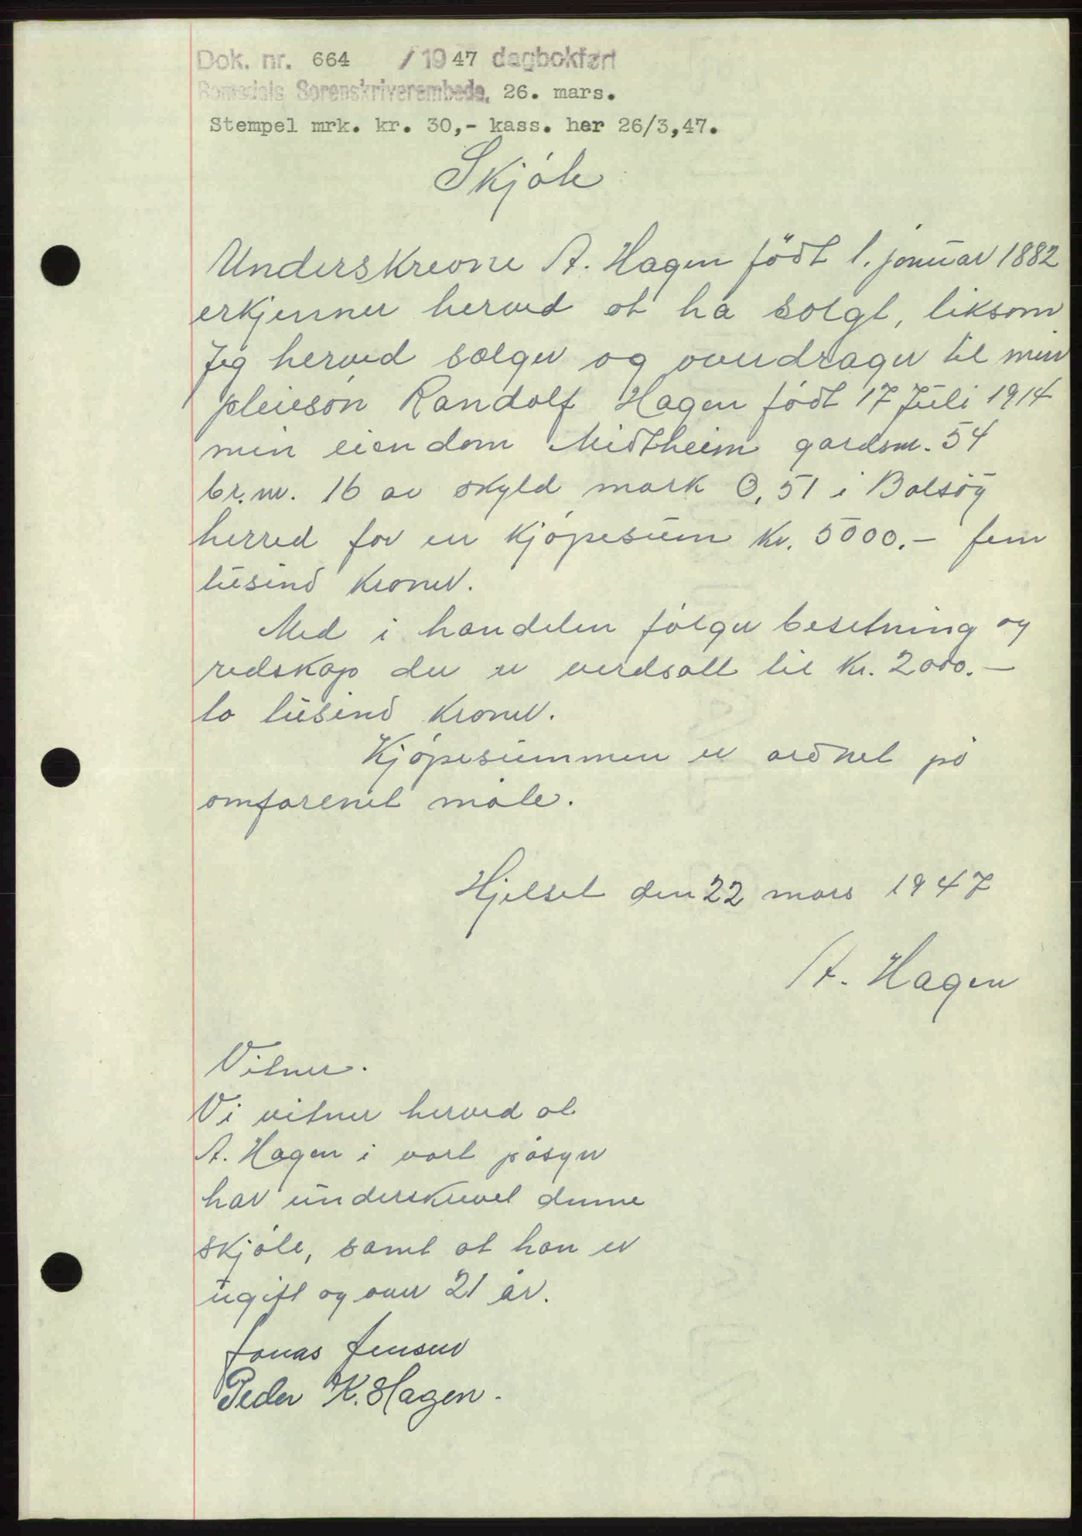 Dok. nr. 664 / 1947 dagbokført
Romsdals Sorenskriverembede, 26. mars.
Stempel mrk. kr. 30,- kass. her 26/3,47.
Skjöte
Underskrevne A. Hagen födt 1. januar 1882
erkjenner herved at ha solgt, liksom
Jeg herved sælger og overdrager til min
pleiesön Randolf Hagen födt 17 Juli 1914
min eiendom Midtheim gardsnr. 54
br.nr. 16 av skyld mark 0,51 i Bolsöy
herred for en kjöpesum kr. 5000.- fem
tusind kroner.
Med i handelen fölger besetning og
redskap der er verdsatt til kr. 2000.-
to tusind kroner.
Kjöpesummen er ordnet på
omforenet måte.
Hjelset den 22 mars 1947
A. Hagen
Vitner.
Vi vitner herved at
A. Hagen i vort påsyn
har underskrevet denne
skjöte, samt at han er
ugift og over 21 år.
Jonas Jensen
Peder K. Hagen.